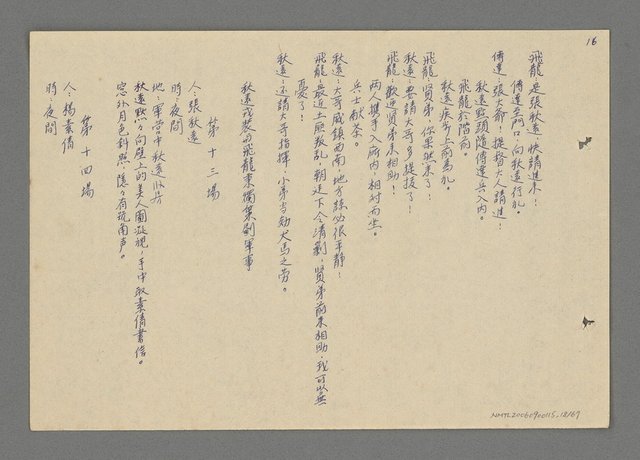 16
飛龍：是張秋遠，快請進來！
傳達至門口，向秋遠行礼。
傳達：張大爺！提督大人請進！
秋遠點頭隨傳達兵入內。
飛龍於階前。
秋遠疾步上前為礼。
飛龍：賢弟，你果然來了！
秋遠：要請大哥多提拔了！
飛龍：歡迎賢弟來相助！
兩人携手入府內，相対而坐。
兵士献茶。
秋遠：大哥威鎮西南，地方諒必很平静！
飛龍：最近土匪叛乱，朝廷下令清剿，賢弟前來相助，我可以無
憂了！
秋遠：还請大哥指揮，小弟当効犬馬之劳。
秋遠戎裝與飛龍東獨策劃軍事
第十三場
人：張秋遠
時：夜間
地：軍営中秋遠臥房
秋遠默々向壁上的美人圖凝視，手中取素倩書信。
窓外月色斜照，隱々有琉南声。
第十四場
人：楊素倩
時：夜間
NMTL20060900115,18/67